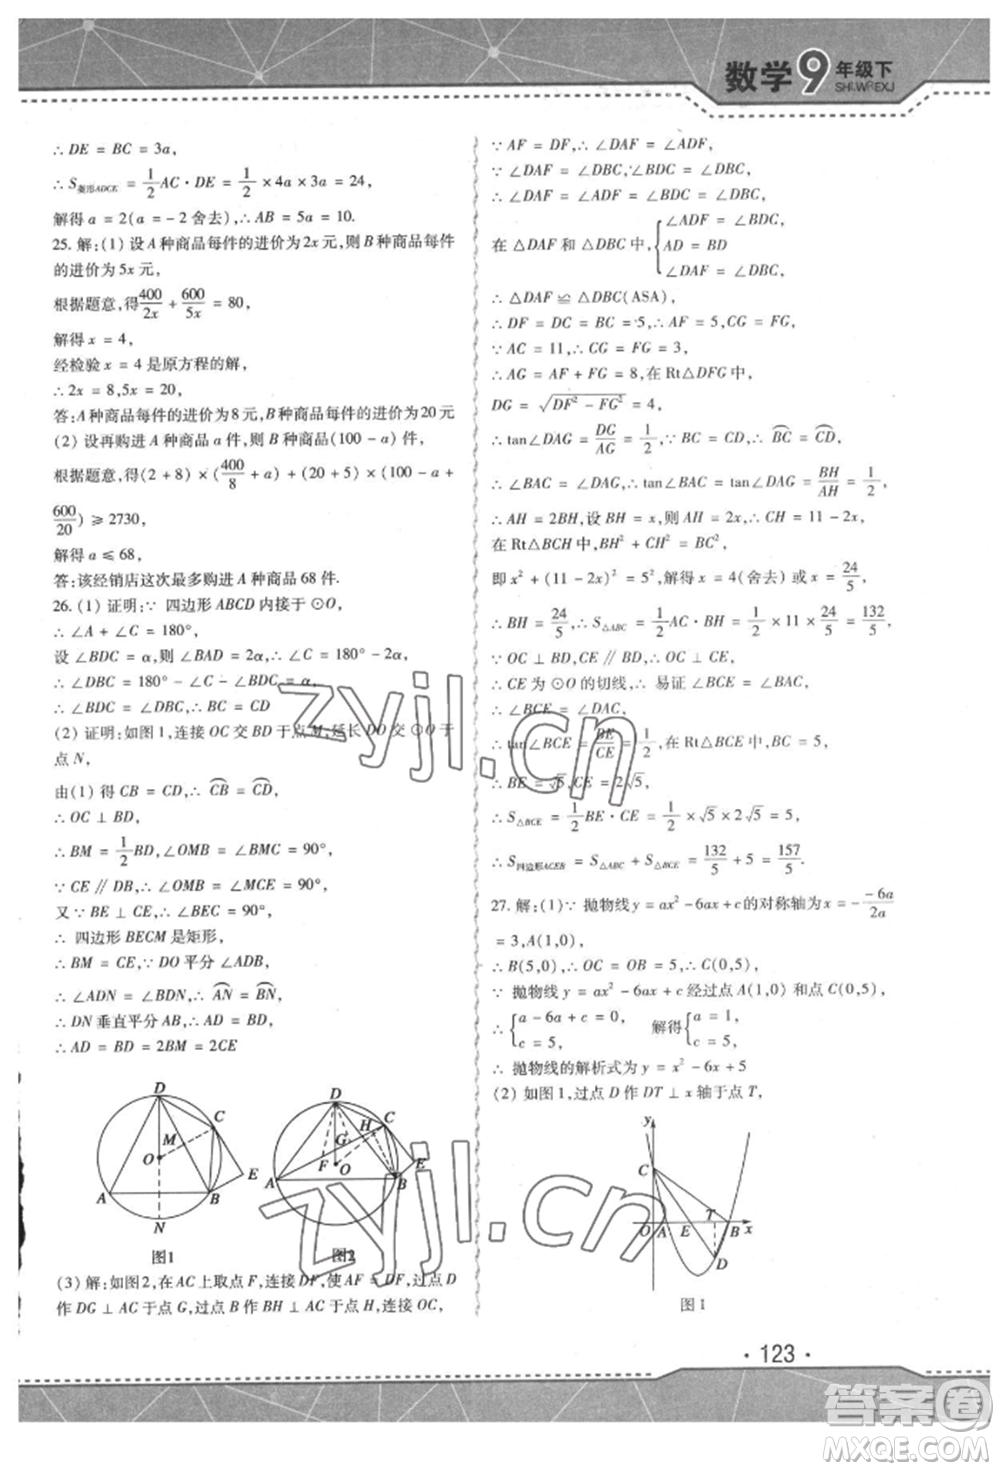 数学9年级下
SHUWREXJ
∴ DE = BC = 3a,
∴ S菱形ADCE = 1/2 AC · DE = 1/2 × 4a × 3a = 24,
解得 a = 2(a = -2 舍去),∴ AB = 5a = 10.
25. 解:(1) 设 A 种商品每件的进价为 2x 元,则 B 种商品每件
的进价为 5x 元,
根据题意,得 400/2x + 600/5x = 80,
解得 x = 4,
经检验 x = 4 是原方程的解,
∴ 2x = 8,5x = 20,
答:A 种商品每件的进价为 8 元,B 种商品每件的进价为 20 元
(2) 设再购进 A 种商品 a 件,则 B 种商品(100 - a) 件,
根据题意,得(2 + 8) × (400/8 + a) + (20 + 5) × (100 - a +
600/20) ≥ 2730,
解得 a ≤ 68,
答:该经销店这次最多购进 A 种商品 68 件.
26. (1) 证明:∵ 四边形 ABCD 内接于 ⊙O,
∴ ∠A + ∠C = 180°,
设 ∠BDC = α,则 ∠BAD = 2α,∴ ∠C = 180° - 2α
∴ ∠DBC = 180° - ∠C - ∠BDC = α,
∴ ∠BDC = ∠DBC,∴ BC = CD
(2) 证明:如图 1,连接 OC 交 BD 于点 M,延长 DO 交 ⊙O 于
点 N,
由(1) 得 CB = CD,∴ ⌒CB = ⌒CD,
∴ OC ⊥ BD,
∴ BM = 1/2 BD,∠OMB = ∠BMC = 90°,
∵ CE ∥ DB,∴ ∠OMB = ∠MCE = 90°,
又 ∵ BE ⊥ CE,∴ ∠BEC = 90°
∴ 四边形 BECM 是矩形,
∴ BM = CE,∵ DO 平分 ∠ADB,
∴ ∠ADN = ∠BDN,∴ ⌒AN = ⌒BN,
∴ DN 垂直平分 AB,∴ AD = BD,
∴ AD = BD = 2BM = 2CE
D
C
M
O
E
A
B
N
图1
D
C
H
G
F
O
E
A
B
图2
(3) 解:如图 2,在 AC 上取点 F,连接 DF,使 AF = DF,过点 D
作 DG ⊥ AC 于点 G,过点 B 作 BH ⊥ AC 于点 H,连接 OC,
∵ AF = DF,∴ ∠DAF = ∠ADF,
∵ ∠DAF = ∠DBC,∠BDC = ∠DBC,
∴ ∠DAF = ∠ADF = ∠BDC = ∠DBC,
在 △DAF 和 △DBC 中, { ∠ADF = ∠BDC,
AD = BD
∠DAF = ∠DBC,
∴ △DAF ≌ △DBC(ASA),
∴ DF = DC = BC = 5,∴ AF = 5,CG = FG,
∵ AC = 11,∴ CG = FG = 3,
∴ AG = AF + FG = 8,在 Rt△DFG 中,
DG = √(DF² - FG²) = 4,
∴ tan∠DAG = DG/AG = 1/2,∵ BC = CD,∴ ⌒BC = ⌒CD,
∴ ∠BAC = ∠DAG,∴ tan∠BAC = tan∠DAG = BH/AH = 1/2,
∴ AH = 2BH,设 BH = x,则 AH = 2x,∴ CH = 11 - 2x,
在 Rt△BCH 中,BH² + CH² = BC²,
即 x² + (11 - 2x)² = 5²,解得 x = 4(舍去) 或 x = 24/5,
∴ BH = 24/5,∴ S△ABC = 1/2 AC · BH = 1/2 × 11 × 24/5 = 132/5,
∵ OC ⊥ BD,CE ∥ BD,∴ OC ⊥ CE,
∴ CE 为 ⊙O 的切线,∴ 易证 ∠BCE = ∠BAC,
∴ ∠BCE = ∠DAC,
∴ tan∠BCE = BE/CE = 1/2,在 Rt△BCE 中,BC = 5,
∴ BE = √5,CE = 2√5,
∴ S△BCE = 1/2 BE · CE = 1/2 × √5 × 2√5 = 5,
∴ S四边形ACEB = S△ABC + S△BCE = 132/5 + 5 = 157/5.
27. 解:(1)∵ 抛物线 y = ax² - 6ax + c 的对称轴为 x = - -6a/2a
= 3,A(1,0),
∴ B(5,0),∴ OC = OB = 5,∴ C(0,5),
∵ 抛物线 y = ax² - 6ax + c 经过点 A(1,0) 和点 C(0,5),
∴ { a - 6a + c = 0, 解得 { a = 1,
c = 5, c = 5,
∴ 抛物线的解析式为 y = x² - 6x + 5
(2) 如图 1,过点 D 作 DT ⊥ x 轴于点 T,
y
C
O
A
E
T
B
x
D
图 1
· 123 ·
zyjl.cn
zyjl.cn
答案圈
MXQE.COM